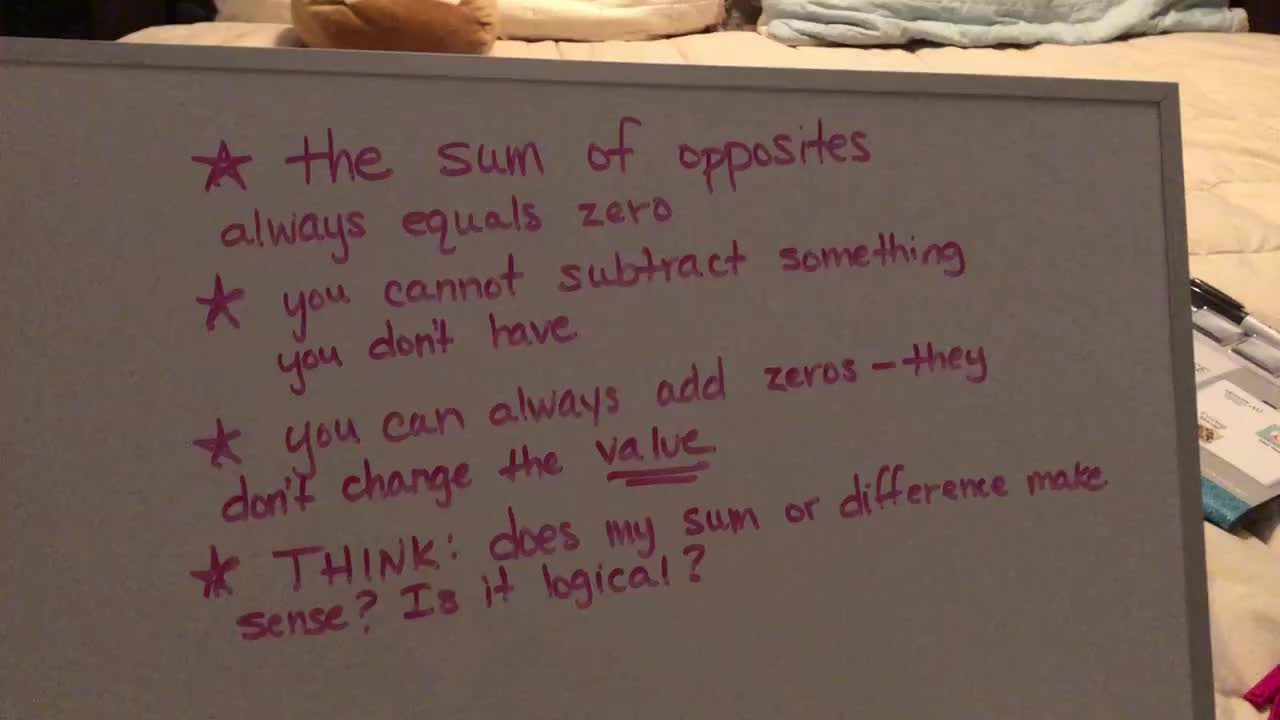 ★ the sum of opposites
always equals zero
★ you cannot subtract something
you don't have
★ you can always add zeros - they
don't change the value
★ THINK: does my sum or difference make
sense? Is it logical?